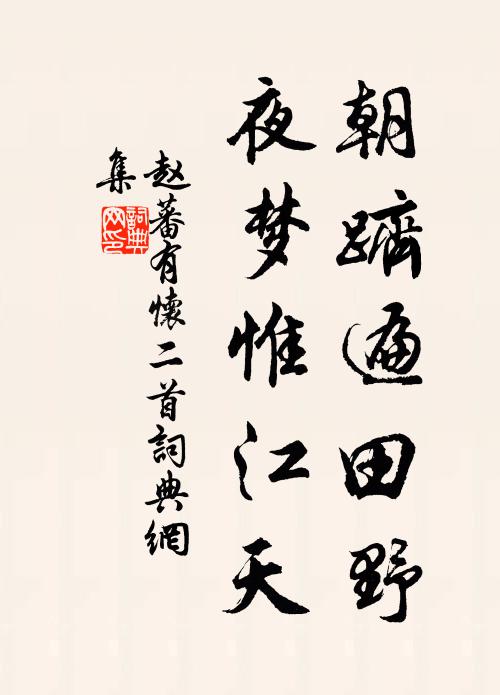 朝躋遍田野
夜梦惟江天
赵蕃有懷二首詞典網
集
詞典网印